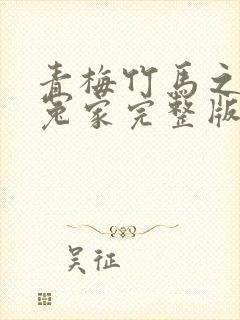 青梅竹馬之
冤家完整版
吴征